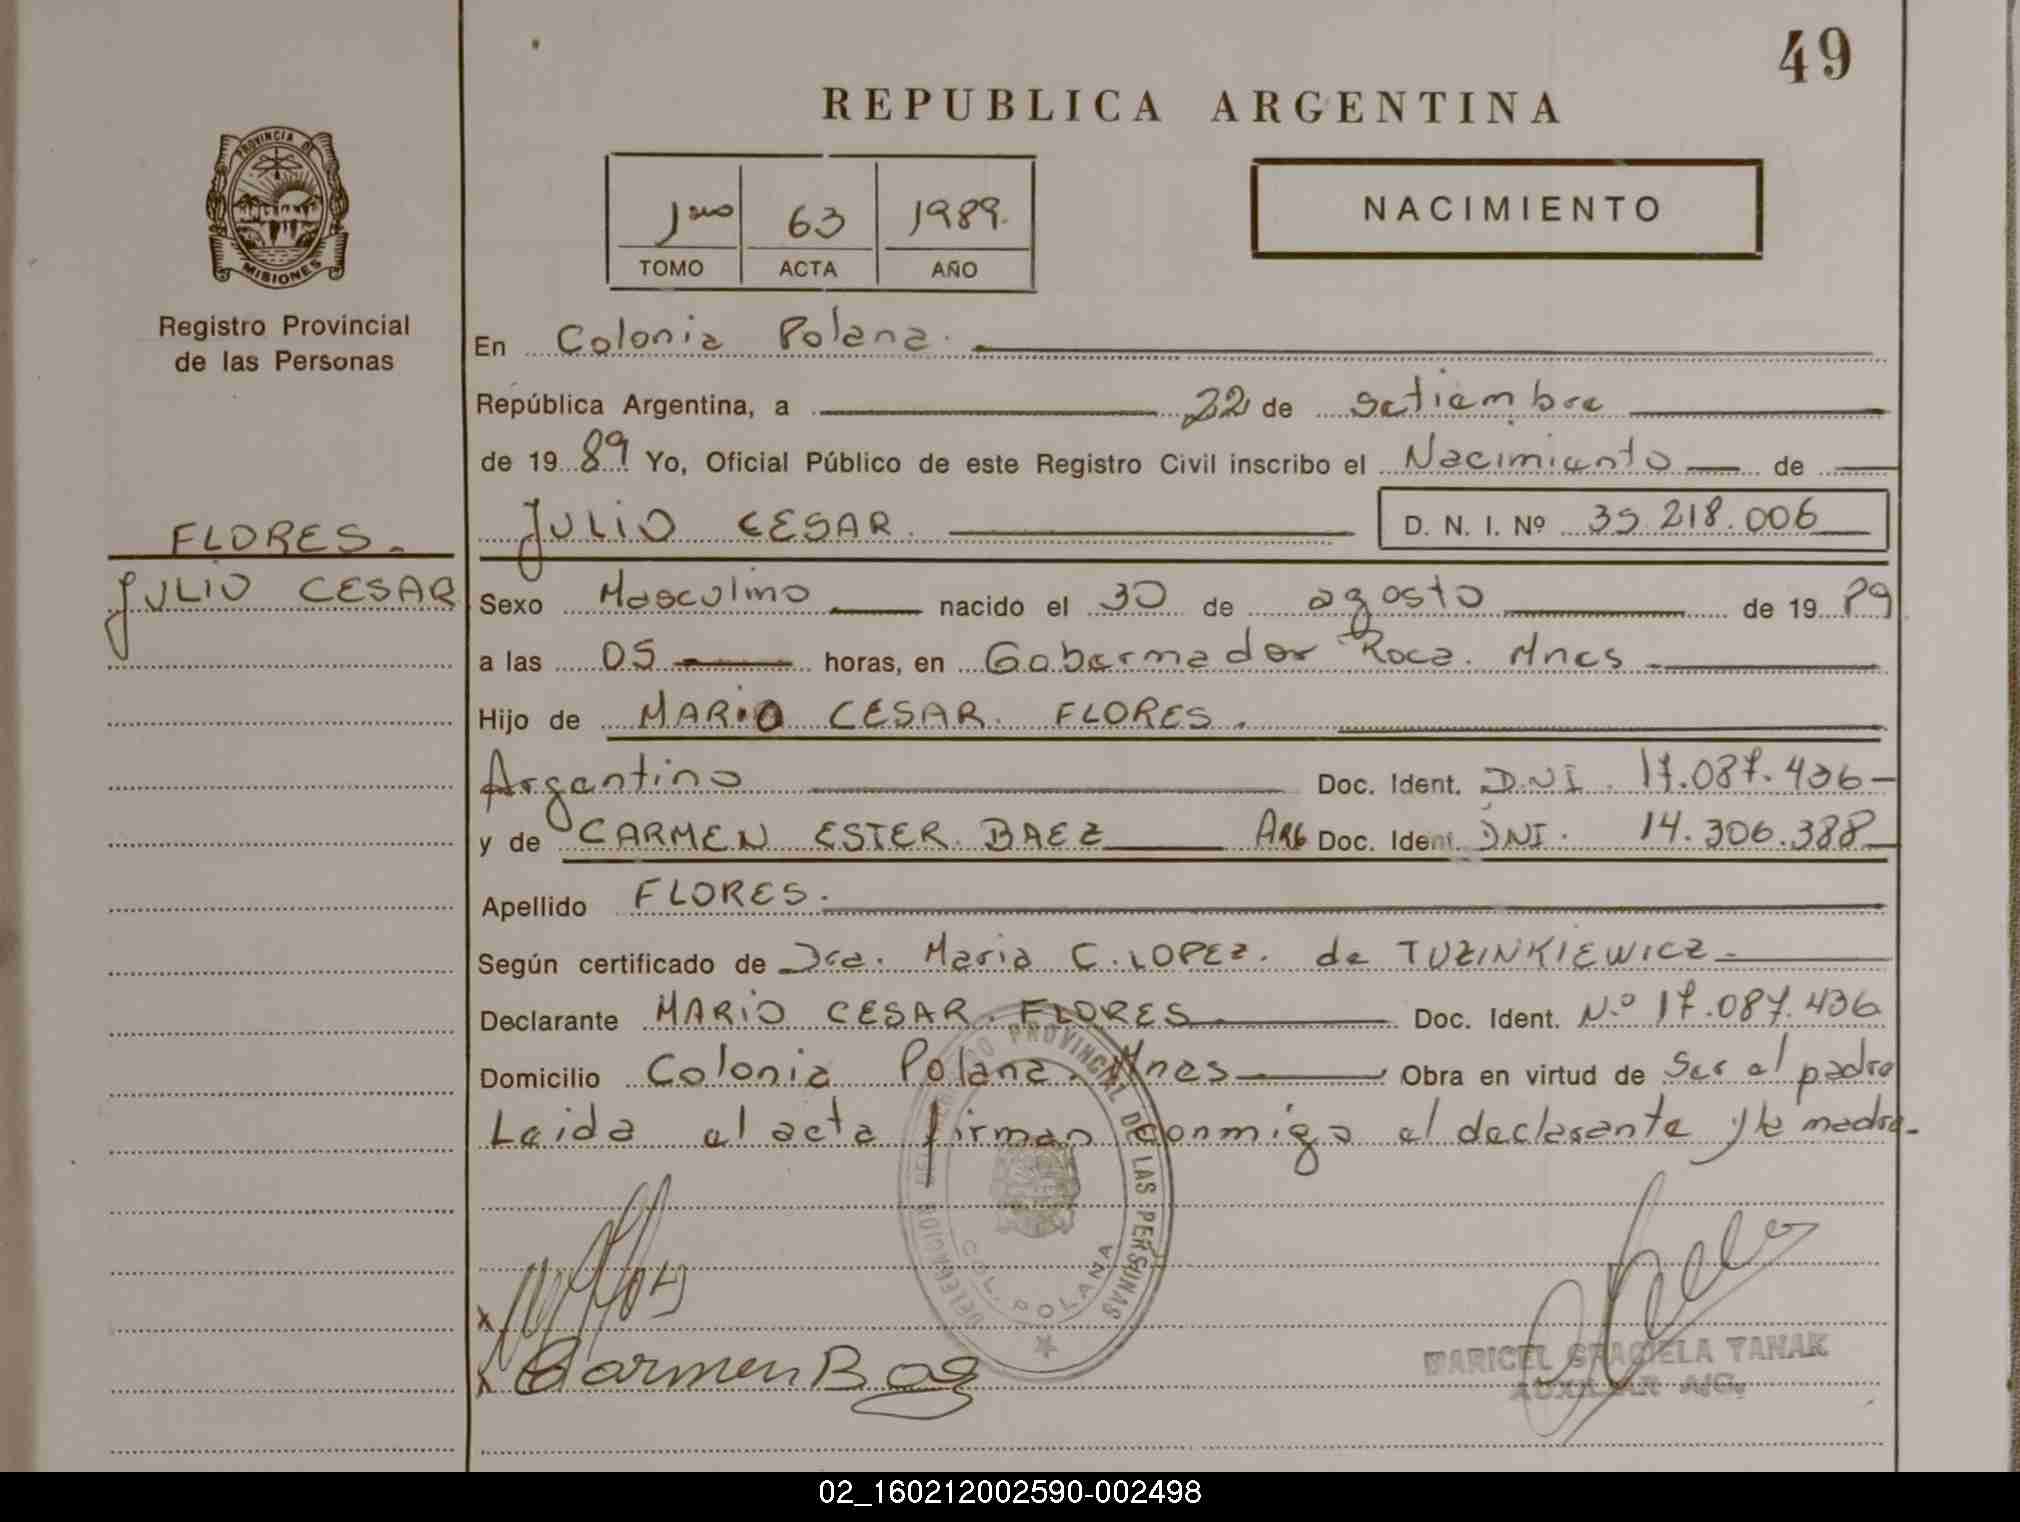 49
REPUBLICA ARGENTINA
PROVINCIA DE
MISIONES
Registro Provincial
de las Personas
1ero 63 1989.
TOMO ACTA AÑO
NACIMIENTO
En Colonia Polana.
República Argentina, a 22 de setiembre
de 19 89 Yo, Oficial Público de este Registro Civil inscribo el Nacimiento de
FLORES.
JULIO CESAR
JULIO CESAR. D. N. I. Nº 35.218.006
Sexo Masculino nacido el 30 de agosto de 19 89
a las 05 horas, en Gobernador Roca. Mnes
Hijo de MARIO CESAR FLORES.
Argentino Doc. Ident. D.N.I. 17.087.436
y de CARMEN ESTER BAEZ ARG Doc. Ident. DNI. 14.306.388
Apellido FLORES.
Según certificado de Dra. Maria C. LOPEZ. de TUZINKIEWICZ
Declarante MARIO CESAR FLORES Doc. Ident. N.º 17.087.436
Domicilio Colonia Polana. Mnes Obra en virtud de Ser el padre
Leida el acta firman conmigo el declarante y la madre.
PROVINCIAL DE LAS PERSONAS
COL. POLANA
Carmen Baez
MARICEL GRACIELA TANAK
AUXILIAR A/C.
02_160212002590-002498